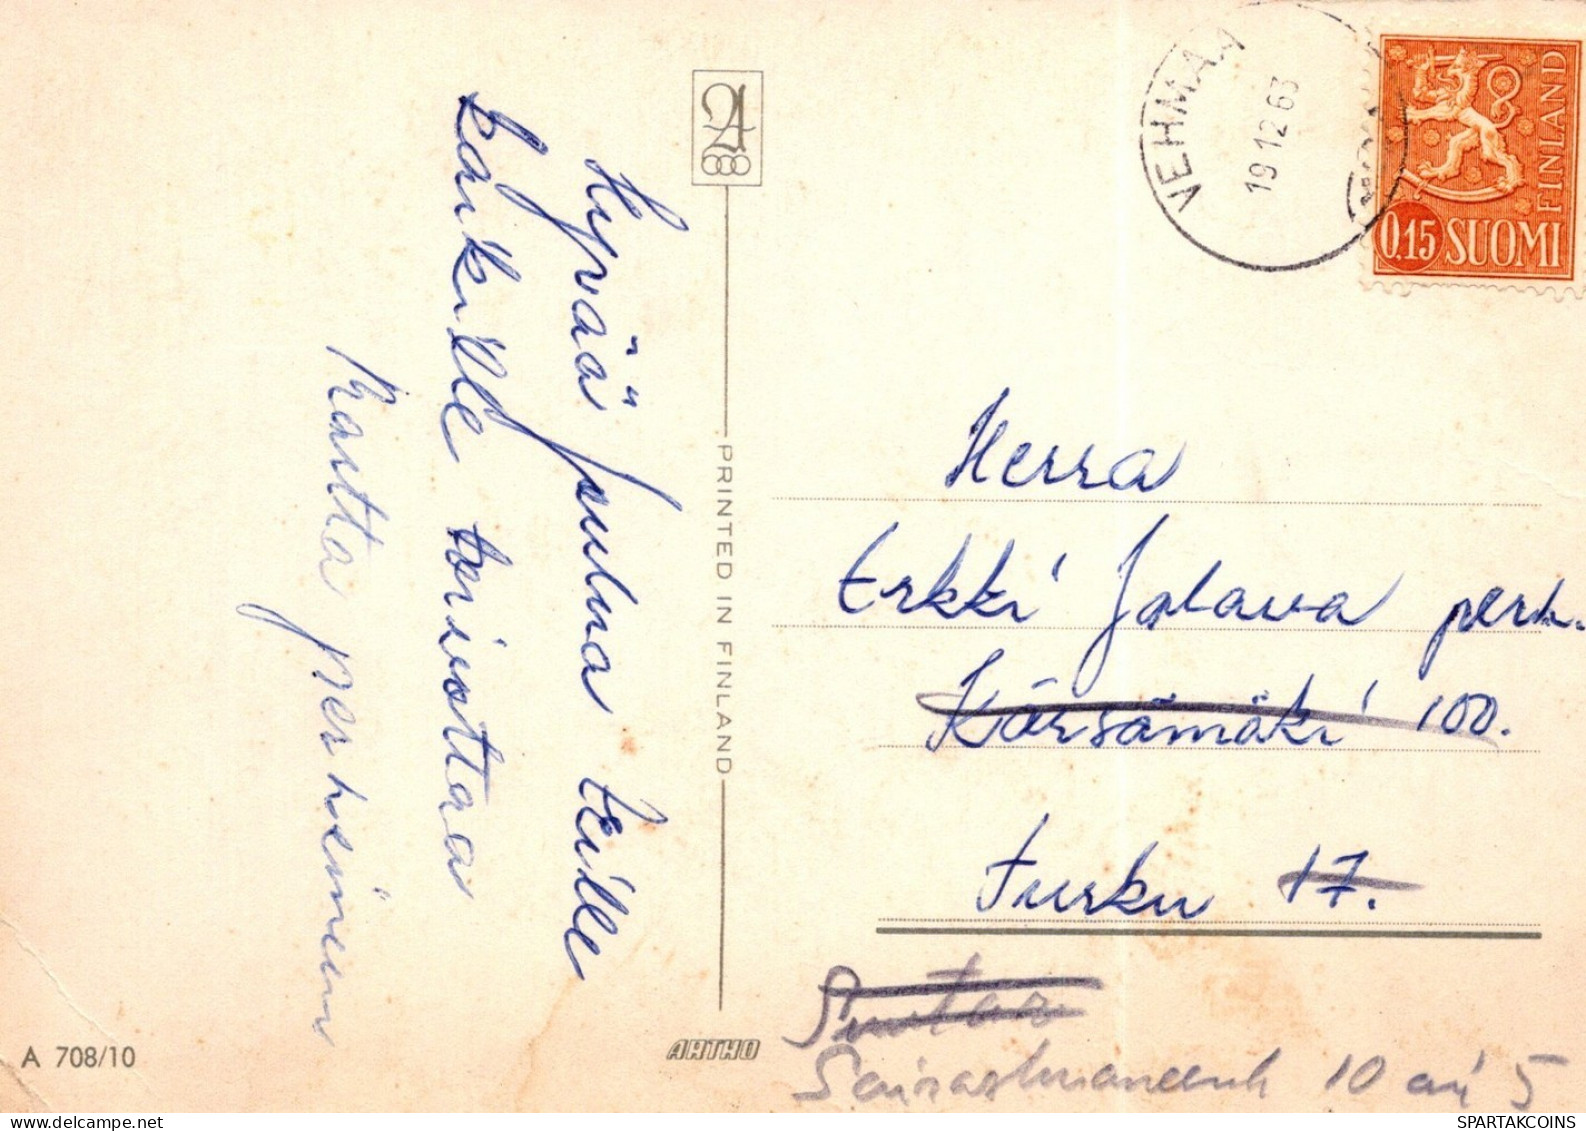 Hyvää joulua teille
kaikille toivottaa
Martta perheineen
PRINTED IN FINLAND
ARTHO
A 708/10
VEHMAA
19 12 63
0,15 SUOMI
FINLAND
Herra
Erkki Jalava perh.
Kärsämäki 100.
Turku 17.
10 as 5
SPARTAKCOINS